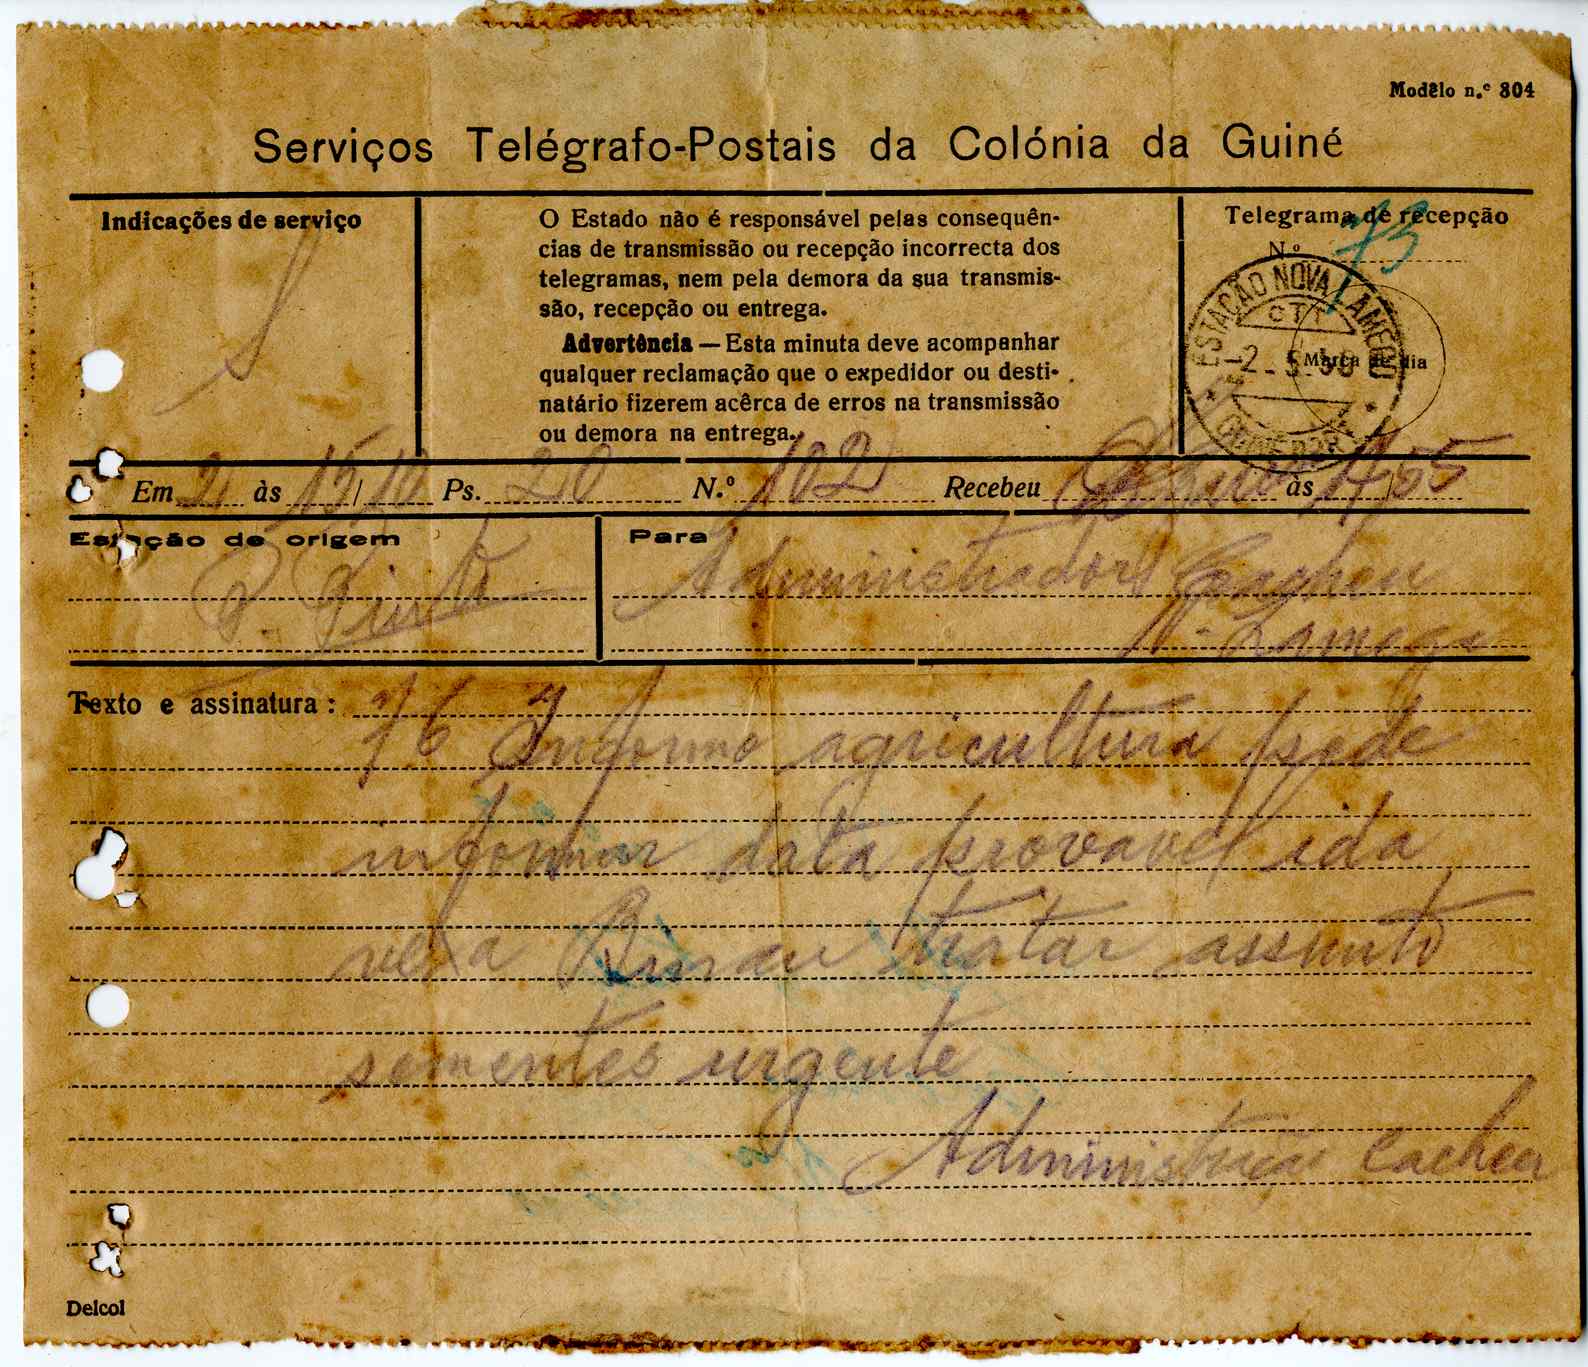 Modêlo n.º 304
Serviços Telégrafo-Postais da Colónia da Guiné
Indicações de serviço
S
O Estado não é responsável pelas consequên-
cias de transmissão ou recepção incorrecta dos
telegramas, nem pela demora da sua transmis-
são, recepção ou entrega.
Advertência — Esta minuta deve acompanhar
qualquer reclamação que o expedidor ou desti-
natário fizerem acêrca de erros na transmissão
ou demora na entrega.
Telegrama de recepção
N.º 73
ESTAÇÃO NOVA LAMEGO
CTT
-2.5.50
Marca do dia
Em 2 às 15/10 Ps. 20 N.º 102 Recebeu às /55
Estação de origem
Para Administrador Cacheu
N. Lamego
Texto e assinatura:
76 Informo agricultura pede
informar data provavel ida
vexa Bissau tratar assunto
sementes urgente
Administração Cacheu
Delcol